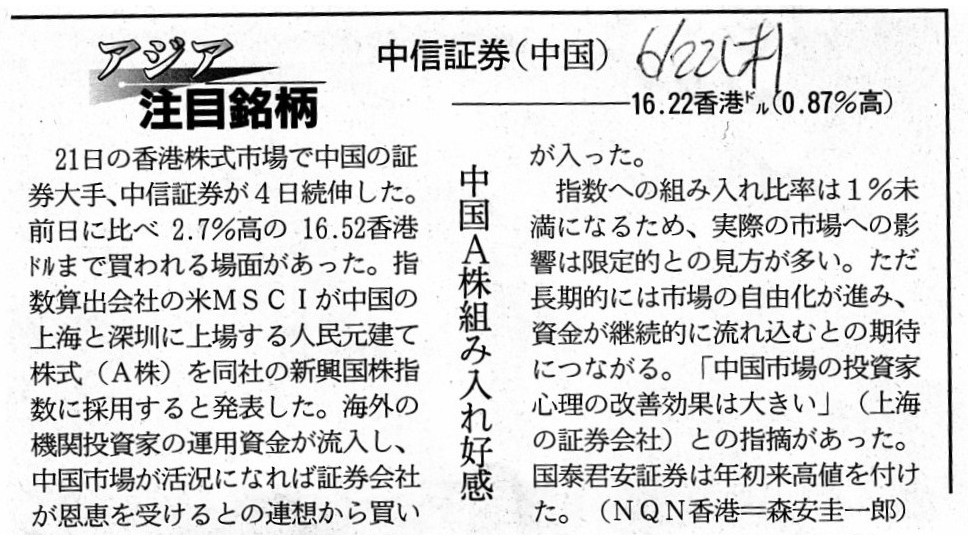 アジア
注目銘柄
中信証券(中国)
6/22(木)
16.22香港ドル(0.87%高)
中国A株組み入れ好感
21日の香港株式市場で中国の証
券大手、中信証券が4日続伸した。
前日に比べ 2.7%高の 16.52香港
ドルまで買われる場面があった。指
数算出会社の米MSCIが中国の
上海と深圳に上場する人民元建て
株式(A株)を同社の新興国株指
数に採用すると発表した。海外の
機関投資家の運用資金が流入し、
中国市場が活況になれば証券会社
が恩恵を受けるとの連想から買い
が入った。
指数への組み入れ比率は1%未
満になるため、実際の市場への影
響は限定的との見方が多い。ただ
長期的には市場の自由化が進み、
資金が継続的に流れ込むとの期待
につながる。「中国市場の投資家
心理の改善効果は大きい」(上海
の証券会社)との指摘があった。
国泰君安証券は年初来高値を付け
た。(NQN香港=森安圭一郎)